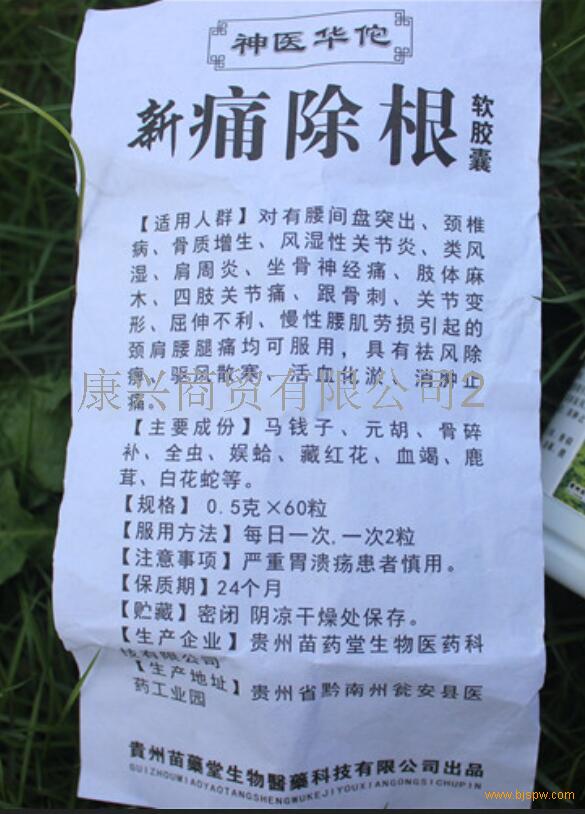 神医华佗
新痛除根
软胶囊
【适用人群】对有腰间盘突出、颈椎
病、骨质增生、风湿性关节炎、类风
湿、肩周炎、坐骨神经痛、肢体麻
木、四肢关节痛、跟骨刺、关节变
形、屈伸不利、慢性腰肌劳损引起的
颈肩腰腿痛均可服用，具有祛风除
痹、驱风散寒、活血化淤、消肿止
痛。
康兴商贸有限公司2
【主要成份】马钱子、元胡、骨碎
补、全虫、娱蛤、藏红花、血竭、鹿
茸、白花蛇等。
【规格】 0.5克×60粒
【服用方法】每日一次,一次2粒
【注意事项】严重胃溃疡患者慎用。
【保质期】24个月
【贮藏】密闭 阴凉干燥处保存。
【生产企业】贵州苗药堂生物医药科
技有限公司
【生产地址】贵州省黔南州瓮安县医
药工业园
貴州苗藥堂生物醫藥科技有限公司出品
GUIZHOUMIAOYAOTANGSHENGWUKEJIYOUXIANGONGSICHUPIN
www.bjspw.com